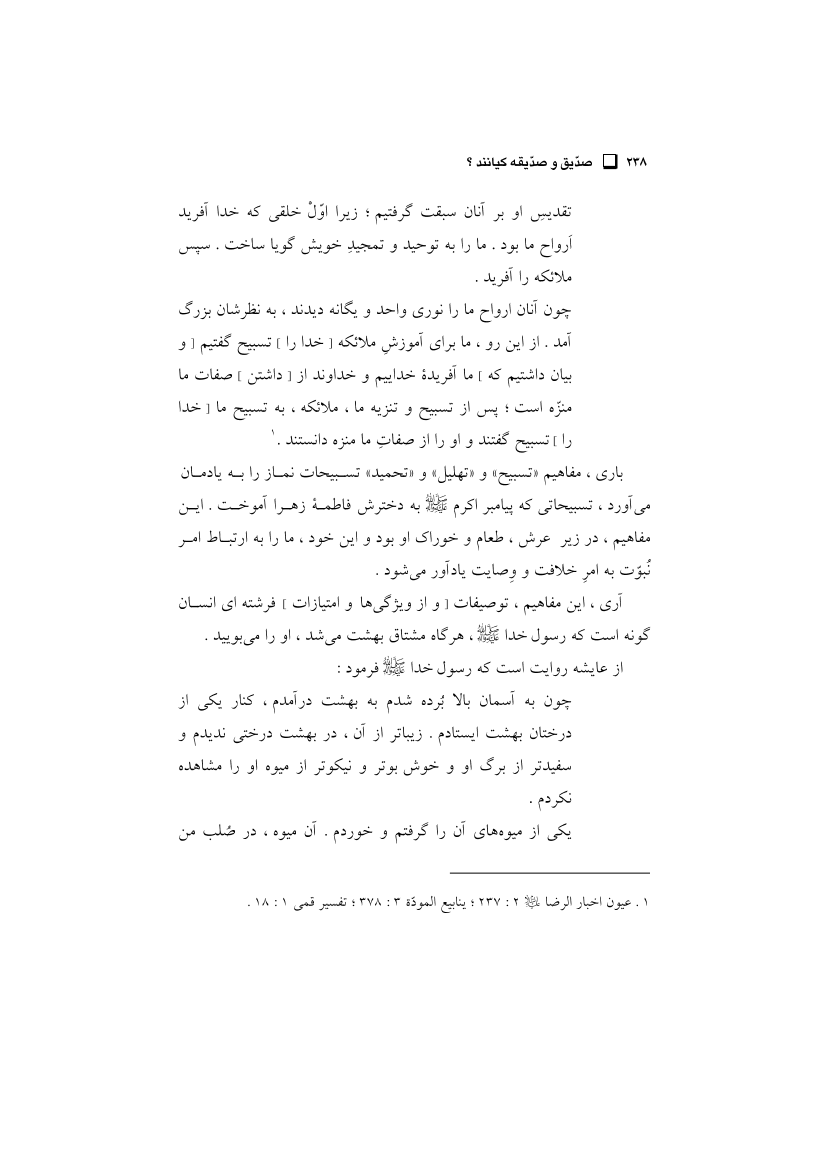 ۲۳۸ ❑ صدّیق و صدّیقه کیانند ؟
تقدیسِ او بر آنان سبقت گرفتیم ؛ زیرا اوّلْ خلقی که خدا آفرید
اَرواح ما بود . ما را به توحید و تمجیدِ خویش گویا ساخت . سپس
ملائکه را آفرید .
چون آنان ارواح ما را نوری واحد و یگانه دیدند ، به نظرشان بزرگ
آمد . از این رو ، ما برای آموزشِ ملائکه [ خدا را ] تسبیح گفتیم [ و
بیان داشتیم که ] ما آفریدهٔ خداییم و خداوند از [ داشتن ] صفات ما
منزّه است ؛ پس از تسبیح و تنزیه ما ، ملائکه ، به تسبیح ما [ خدا
را ] تسبیح گفتند و او را از صفاتِ ما منزه دانستند .۱
باری ، مفاهیم «تسبیح» و «تهلیل» و «تحمید» تسـبیحات نمـاز را بـه یادمـان
می‌آورد ، تسبیحاتی که پیامبر اکرم ﷺ به دخترش فاطمـهٔ زهـرا آموخـت . ایـن
مفاهیم ، در زیر عرش ، طعام و خوراک او بود و این خود ، ما را به ارتبـاط امـر
نُبوّت به امرِ خلافت و وِصایت یادآور می‌شود .
آری ، این مفاهیم ، توصیفات [ و از ویژگی‌ها و امتیازات ] فرشته ای انسـان
گونه است که رسول خدا ﷺ ، هرگاه مشتاق بهشت می‌شد ، او را می‌بویید .
از عایشه روایت است که رسول خدا ﷺ فرمود :
چون به آسمان بالا بُرده شدم به بهشت درآمدم ، کنار یکی از
درختان بهشت ایستادم . زیباتر از آن ، در بهشت درختی ندیدم و
سفیدتر از برگ او و خوش بوتر و نیکوتر از میوه او را مشاهده
نکردم .
یکی از میوه‌های آن را گرفتم و خوردم . آن میوه ، در صُلب من
۱ . عیون اخبار الرضا ؑ ۲ : ۲۳۷ ؛ ینابیع المودّة ۳ : ۳۷۸ ؛ تفسیر قمی ۱ : ۱۸ .